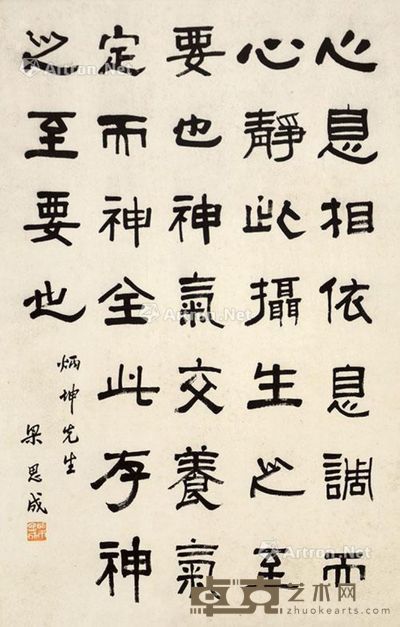 心息相依息調而
心靜此攝生之至
要也神氣交養氣
定而神全此存神
之至要也
炳坤先生
梁思成
Artron.Net
Artron.Net
Artron.Net
Artron.Net
Artron.Net
卓克艺术网
zhuokearts.com